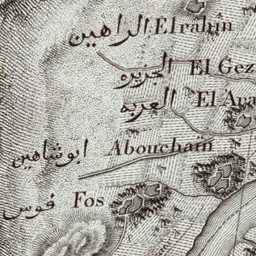 الراهين Elrahin
الجزيره El Gez
العربه El Ara
ابو شاهين Abouchain
فوس Fos